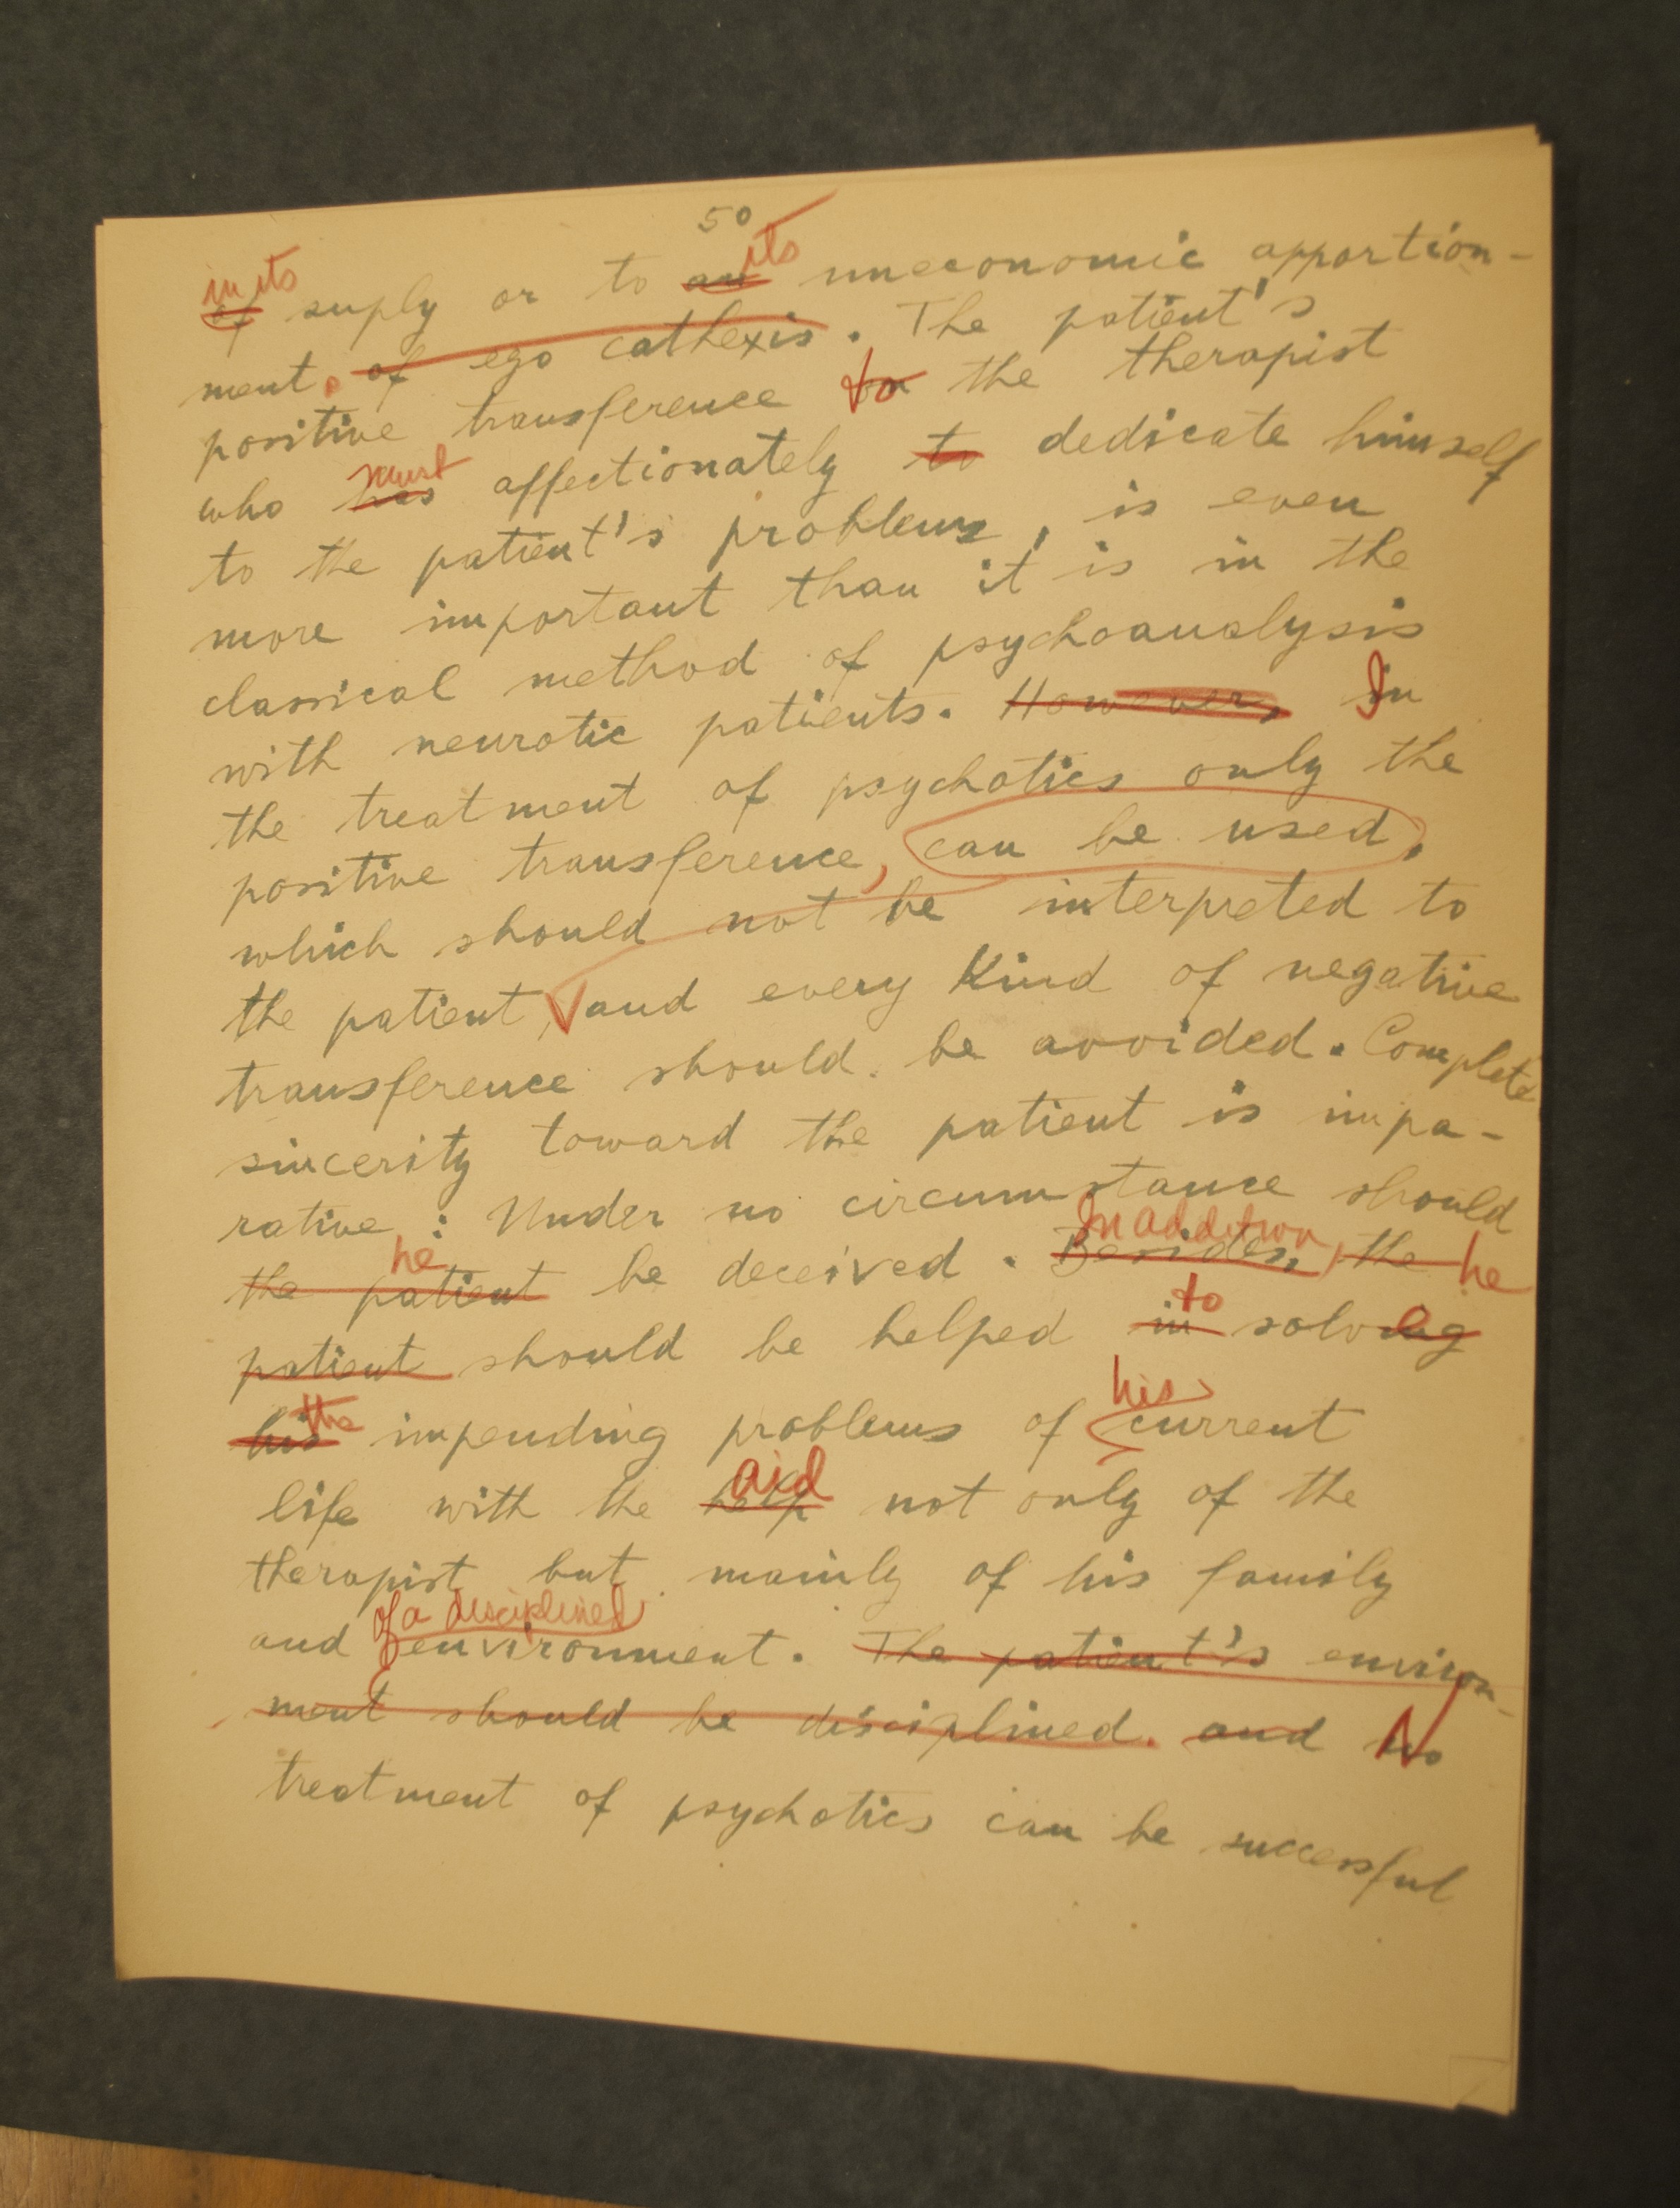 50
in its its
of suply or to an uneconomic apportion-
ment. of ego cathexis. The patient's
positive transference to the therapist
must
who has affectionately to dedicate himself
to the patient's problems, is even
more important than it is in the
classical method of psychoanalysis
with neurotic patients. However, In
the treatment of psychotics only the
positive transference, can be used,
which should not be interpreted to
the patient, and every Kind of negative
transference should be avoided. Complete
sincerity toward the patient is impa-
rative: Under no circumstance should
he In addition,
the patient be deceived. Besides, the he
to
patient should be helped in solving
the his
his impending problems of current
aid
life with the help not only of the
therapist but mainly of his family
of a disciplined
and environment. The patient's environ-
ment should be disciplined. and No
treatment of psychotics can be successful